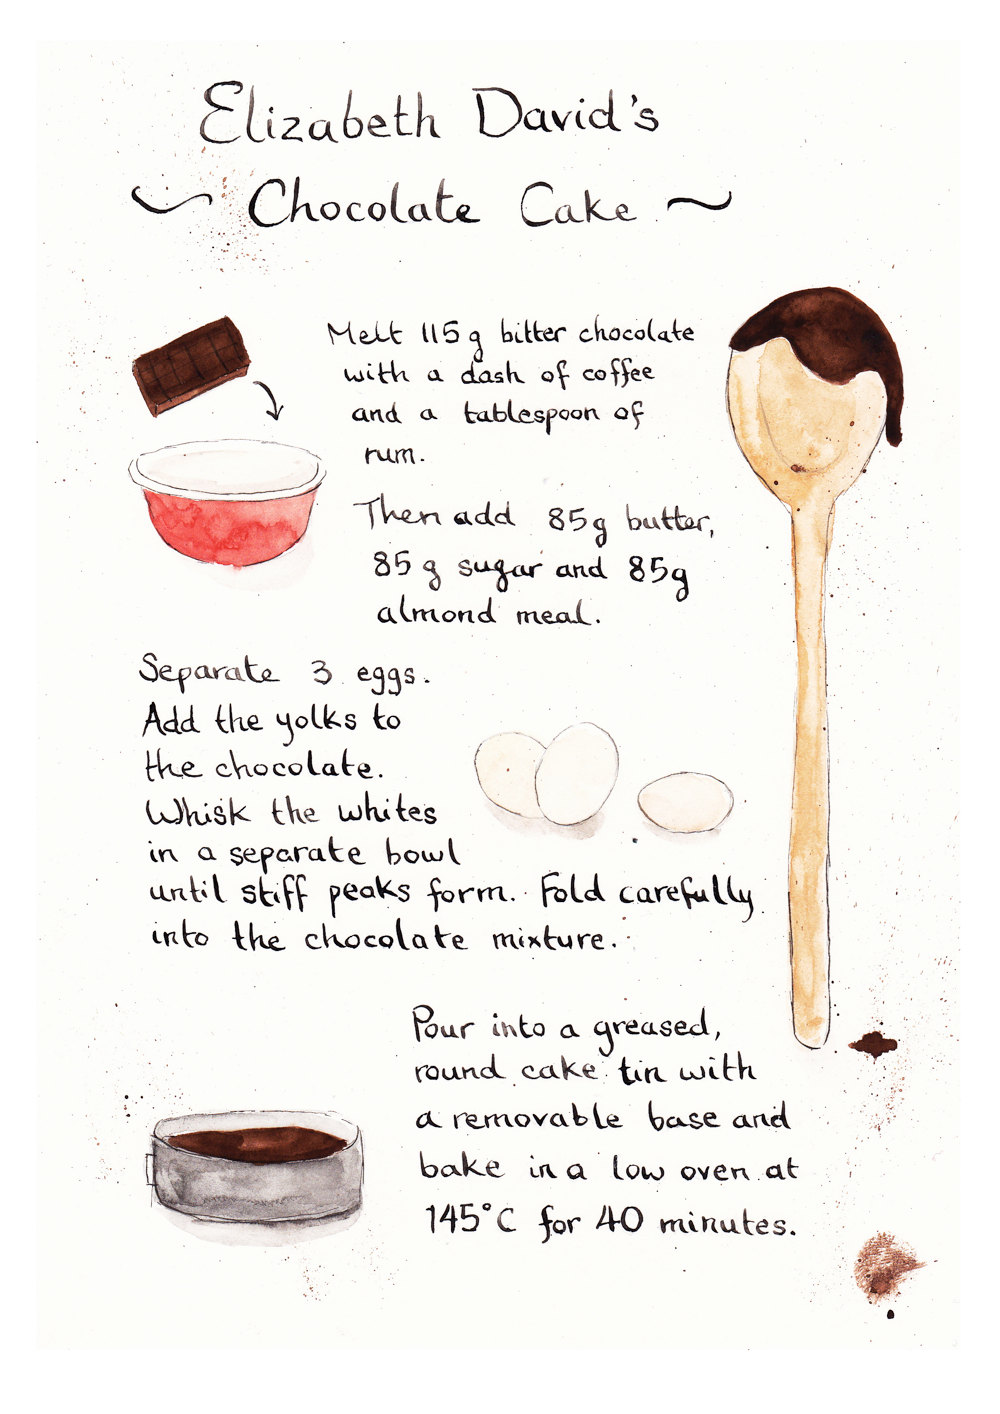 Elizabeth David's
Chocolate Cake
Melt 115g bitter chocolate
with a dash of coffee
and a tablespoon of
rum.
Then add 85g butter,
85g sugar and 85g
almond meal.
Separate 3 eggs.
Add the yolks to
the chocolate.
Whisk the whites
in a separate bowl
until stiff peaks form. Fold carefully
into the chocolate mixture.
Pour into a greased,
round cake tin with
a removable base and
bake in a low oven at
145°C for 40 minutes.